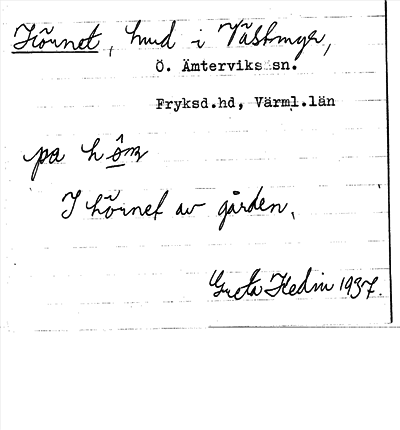 Hörnet, hmd i Västmyr,
Ö. Ämterviks sn.
Fryksd.hd, Värml.län
pa
I hörnet av gården.
Greta Hedin 1937.